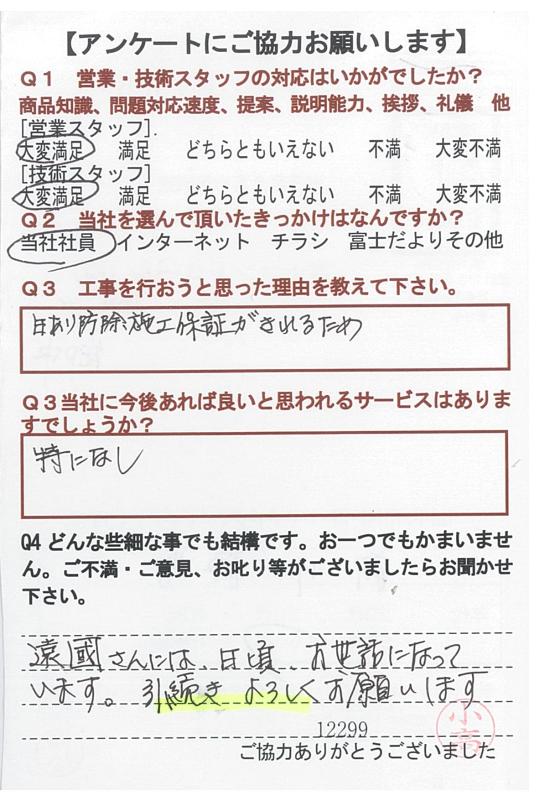 【アンケートにご協力お願いします】
Q1 営業・技術スタッフの対応はいかがでしたか?
商品知識、問題対応速度、提案、説明能力、挨拶、礼儀 他
[営業スタッフ].
大変満足 満足 どちらともいえない 不満 大変不満
[技術スタッフ]
大変満足 満足 どちらともいえない 不満 大変不満
Q2 当社を選んで頂いたきっかけはなんですか?
当社社員 インターネット チラシ 富士だよりその他
Q3 工事を行おうと思った理由を教えて下さい。
白あり防除施工保証がきれるため
Q3当社に今後あれば良いと思われるサービスはありま
すでしょうか?
特になし
Q4 どんな些細な事でも結構です。お一つでもかまいませ
ん。ご不満・ご意見、お叱り等がございましたらお聞かせ
下さい。
遠國さんには、日頃、お世話になって
います。引続きよろしくお願いします
12299
小高
ご協力ありがとうございました